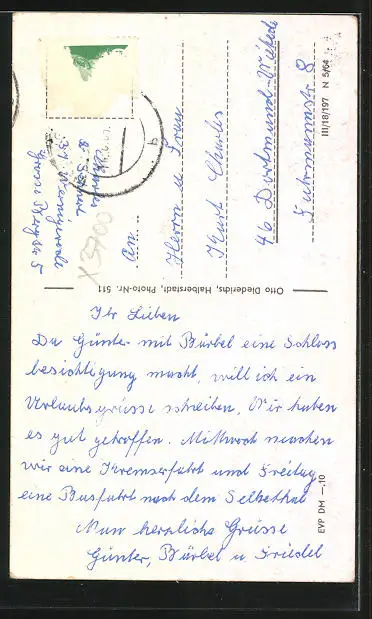 Ihr Lieben
Da Günter mit Bärbel eine Schloss
besichtigung macht, will ich ein
Urlaubsgrüsse schreiben, Wir haben
es gut getroffen. Mittwoch machen
wir eine Kremserfahrt und Freitag
eine Busfahrt nach dem Selkethal
Nun herzliche Grüsse
Günter, Bärbel u. Friedel
An
Herrn u Frau
Kurt Charles
46 Dortmund-
Fuhrmannstr 8
37 Wernigerode
X3700
Otto Diederichs, Halberstadt, Photo-Nr. 511
III/18/197 N 5/64
EVP DM -.10